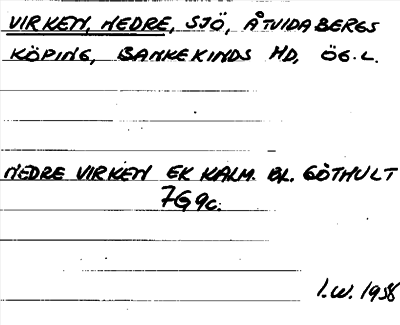 VIRKEN, NEDRE, SJÖ, ÅTVIDABERGS
KÖPING, BANKEKINDS HD, ÖG. L.
NEDRE VIRKEN EK KALM. BL. GÖTHULT
7G9c.
I.W. 1958